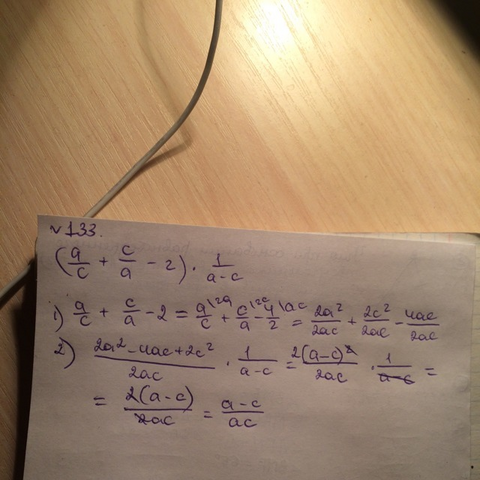 №133.
(a/c + c/a - 2) · 1/(a-c)
1) a/c + c/a - 2 = a/c \2a + c/a \2c - 4/2 \ac = 2a²/2ac + 2c²/2ac - 4ac/2ac
2) (2a² - 4ac + 2c²)/2ac · 1/(a-c) = 2(a-c)²/2ac · 1/(a-c) =
= 2(a-c)/2ac = (a-c)/ac